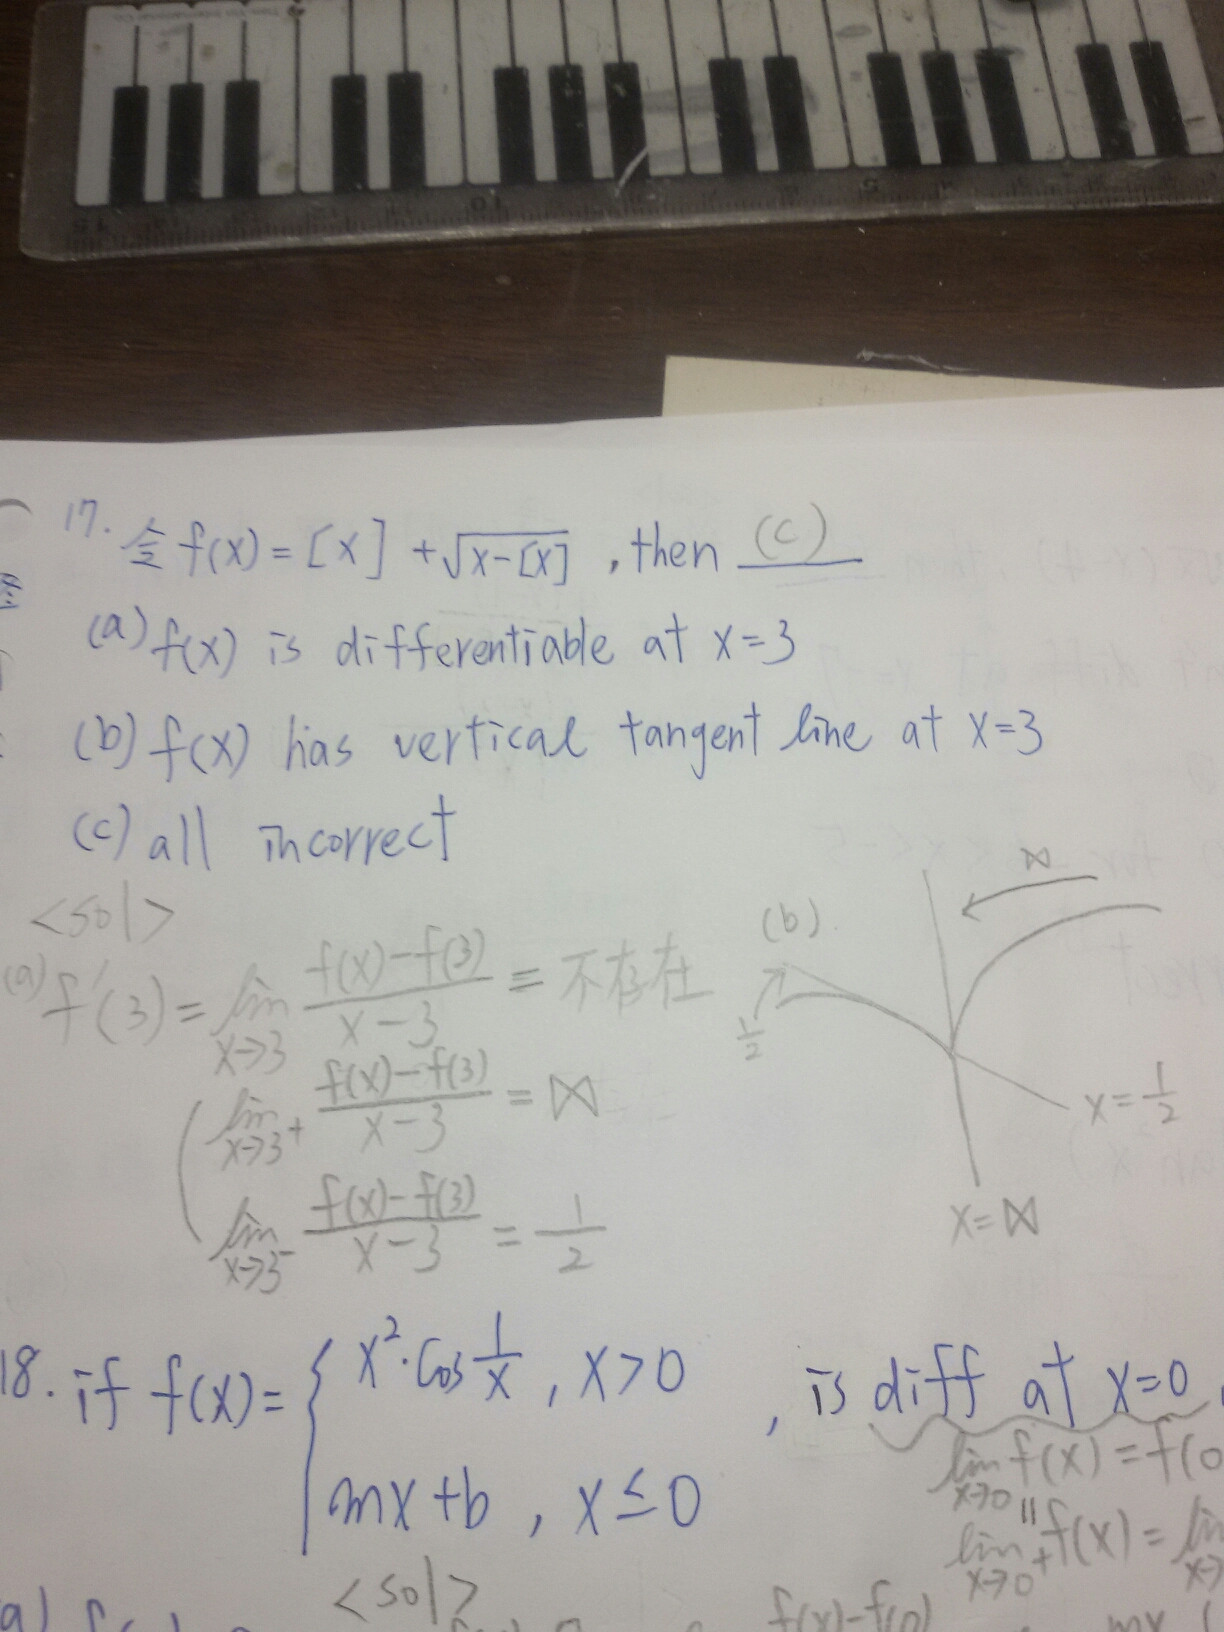 17. 令 f(x) = [x] + √x-[x] , then (c)
(a) f(x) is differentiable at x=3
(b) f(x) has vertical tangent line at x=3
(c) all incorrect
<sol>
(a) f'(3) = lim x→3 f(x)-f(3) / x-3 = 不存在
lim x→3+ f(x)-f(3) / x-3 = ∞
lim x→3- f(x)-f(3) / x-3 = 1/2
(b)
∞
1/2
x = 1/2
x = ∞
18. if f(x) = { x²·cos 1/x , x>0 , is diff at x=0
mx+b , x≤0
lim x→0 f(x) = f(0
lim x→0+ f(x) = lim
<sol>
f(x)-f(0)
mx